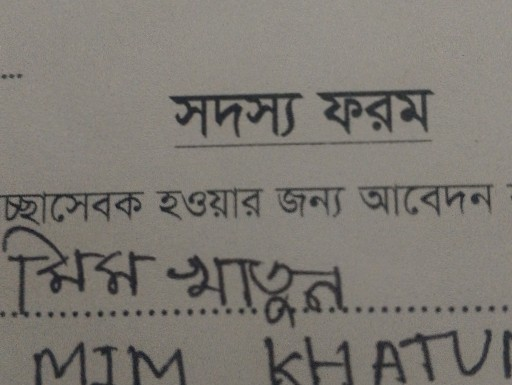 সদস্য ফরম
হওয়ার জন্য আবেদন
মিম খাতুন
MIM KHATUN